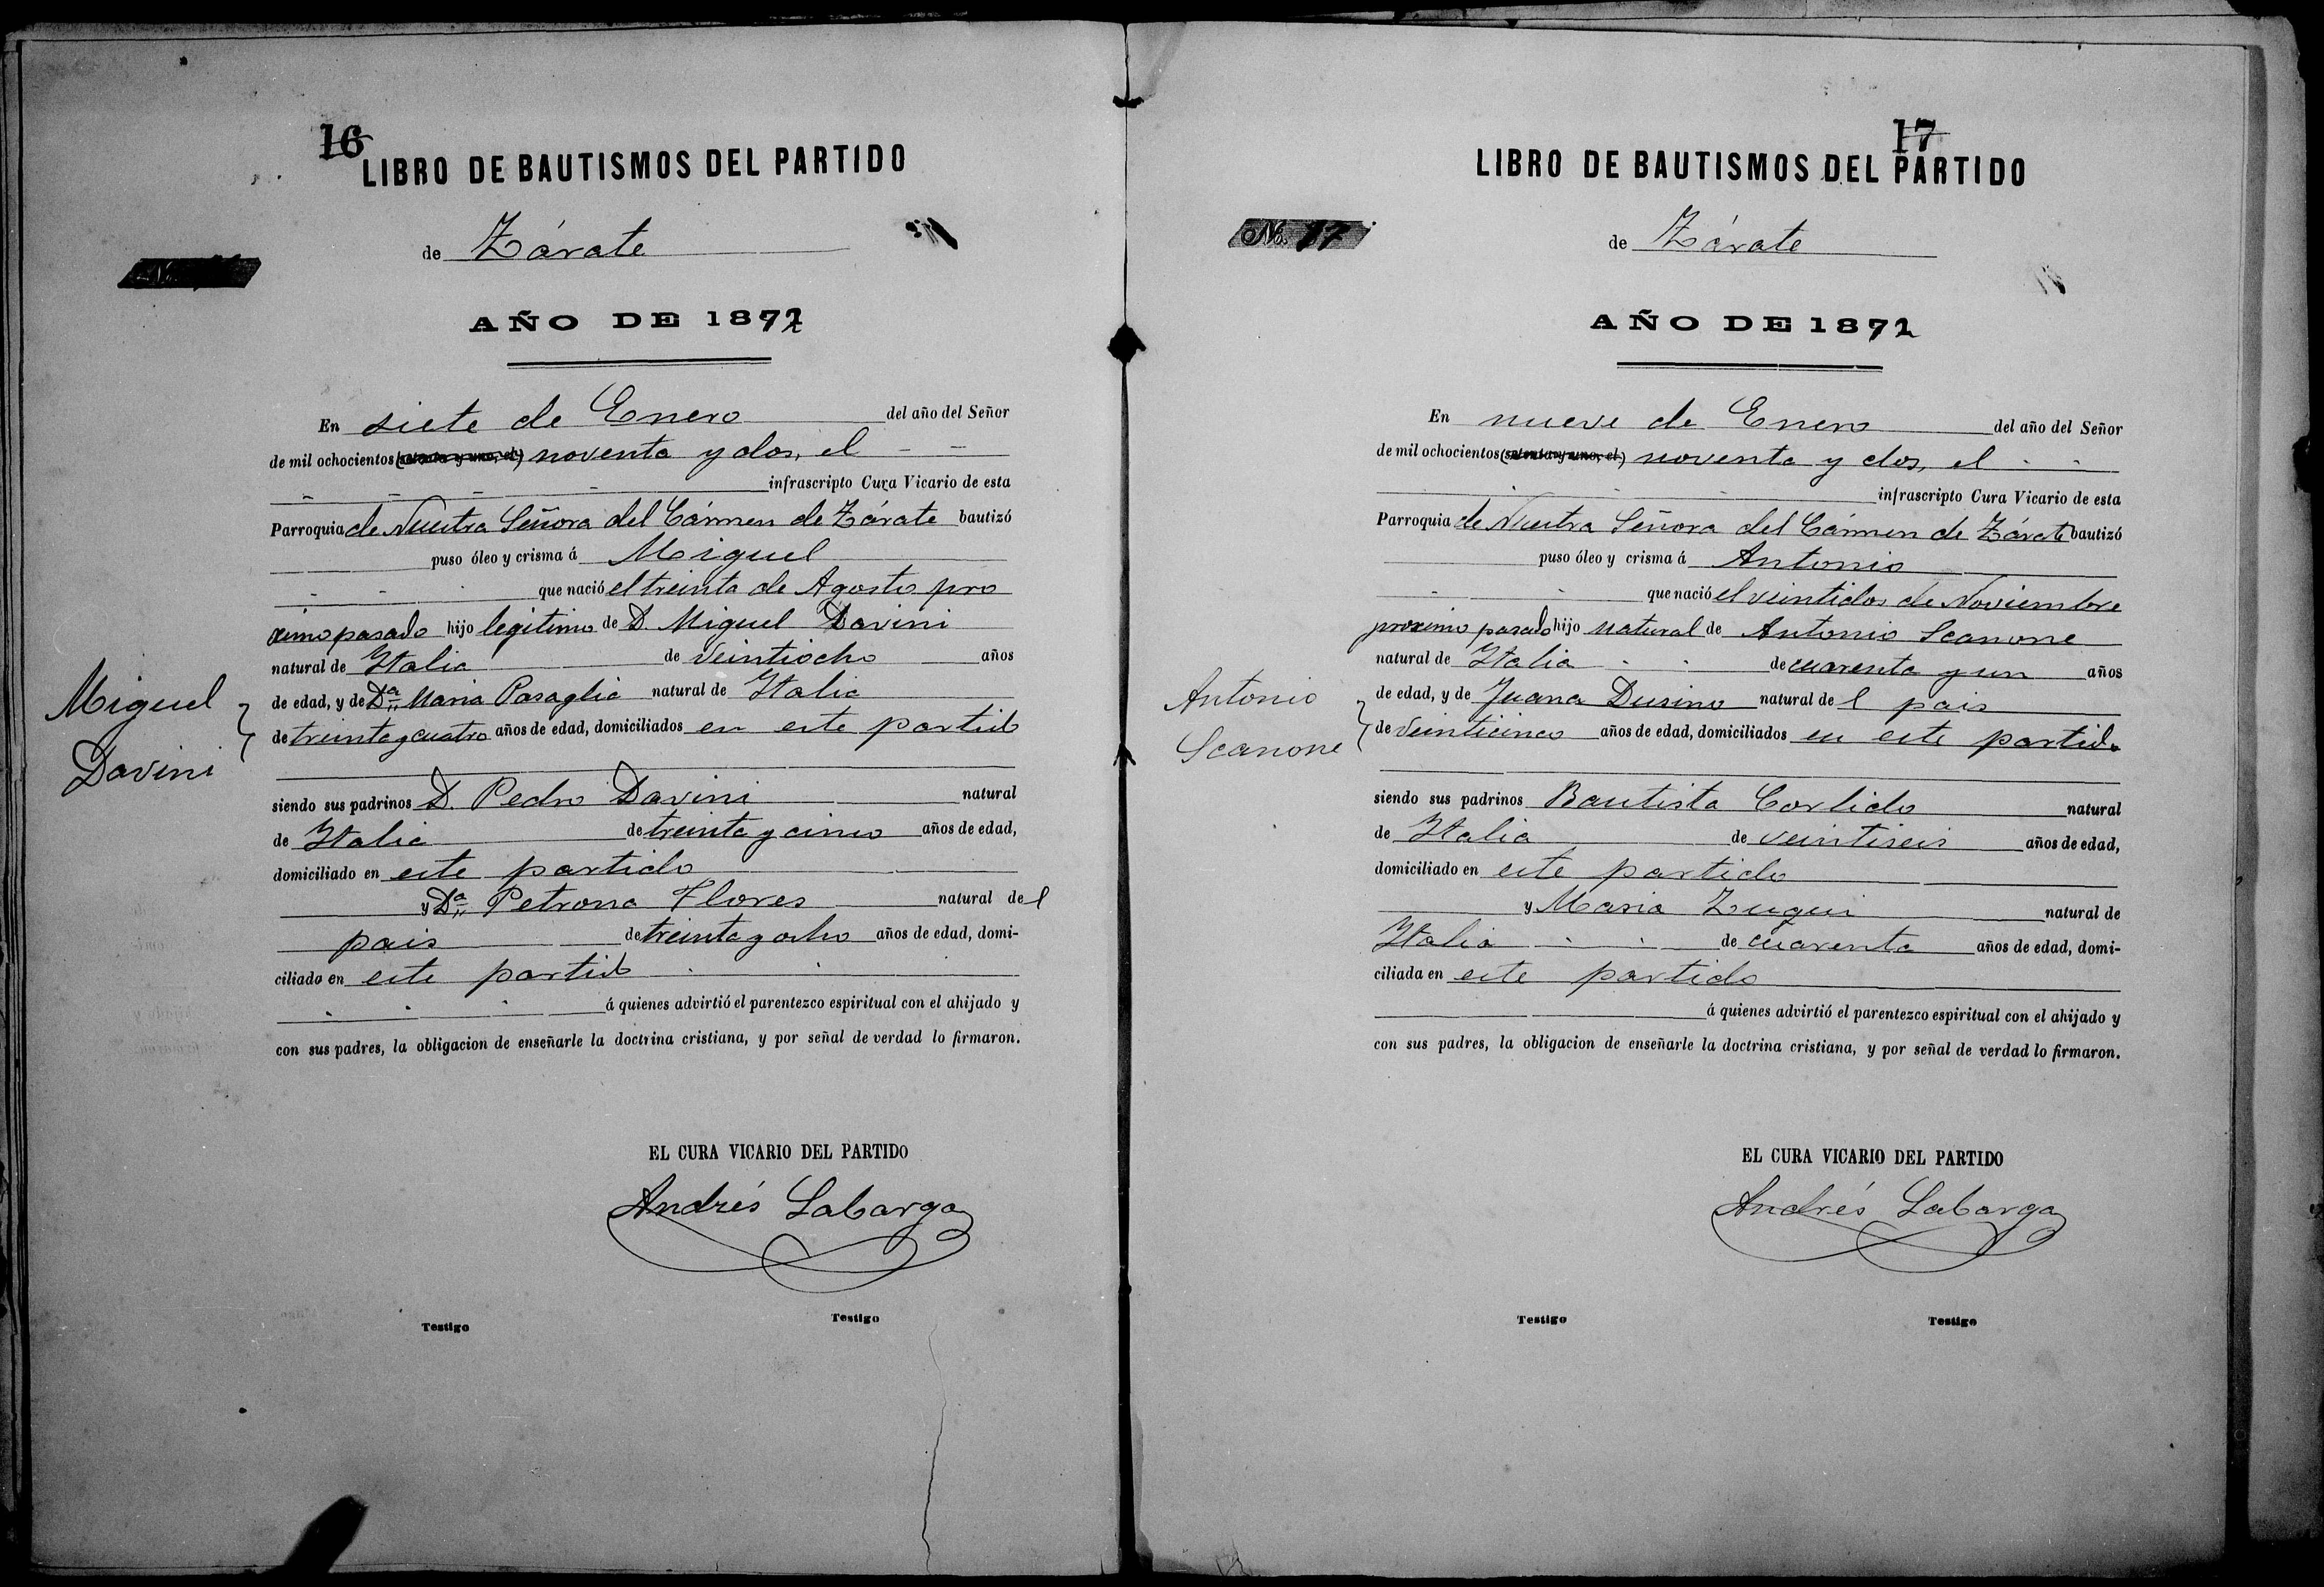 16
LIBRO DE BAUTISMOS DEL PARTIDO
de Zárate
AÑO DE 1892
En siete de Enero del año del Señor
de mil ochocientos (setenta y uno, el) noventa y dos, el
infrascripto Cura Vicario de esta
Parroquia de Nuestra Señora del Cármen de Zárate bautizó
puso óleo y crisma á Miguel
que nació el treinta de Agosto pro
ximo pasado hijo legitimo de D. Miguel Davini
natural de Italia de veintiocho años
de edad, y de Da. Maria Pasaglia natural de Italia
de treinta y cuatro años de edad, domiciliados en este partido
Miguel
Davini
siendo sus padrinos D. Pedro Davini natural
de Italia de treinta y cinco años de edad,
domiciliado en este partido
y Da. Petrona Flores natural del
pais de treinta y ocho años de edad, domi-
ciliada en este partido
á quienes advirtió el parentezco espiritual con el ahijado y
con sus padres, la obligacion de enseñarle la doctrina cristiana, y por señal de verdad lo firmaron.
EL CURA VICARIO DEL PARTIDO
Andrés Labarga
Testigo Testigo
17
LIBRO DE BAUTISMOS DEL PARTIDO
No. 17
de Zárate
AÑO DE 1892
En nueve de Enero del año del Señor
de mil ochocientos (setenta y uno, el) noventa y dos, el
infrascripto Cura Vicario de esta
Parroquia de Nuestra Señora del Cármen de Zárate bautizó
puso óleo y crisma á Antonio
que nació el veintidos de Noviembre
proximo pasado hijo natural de Antonio Scanone
natural de Italia de cuarenta y un años
de edad, y de Juana Dusino natural del pais
de veinticinco años de edad, domiciliados en este partido
Antonio
Scanone
siendo sus padrinos Bautista Corlido natural
de Italia de veintiseis años de edad,
domiciliado en este partido
y Maria Zugui natural de
Italia de cuarenta años de edad, domi-
ciliada en este partido
á quienes advirtió el parentezco espiritual con el ahijado y
con sus padres, la obligacion de enseñarle la doctrina cristiana, y por señal de verdad lo firmaron.
EL CURA VICARIO DEL PARTIDO
Andrés Labarga
Testigo Testigo